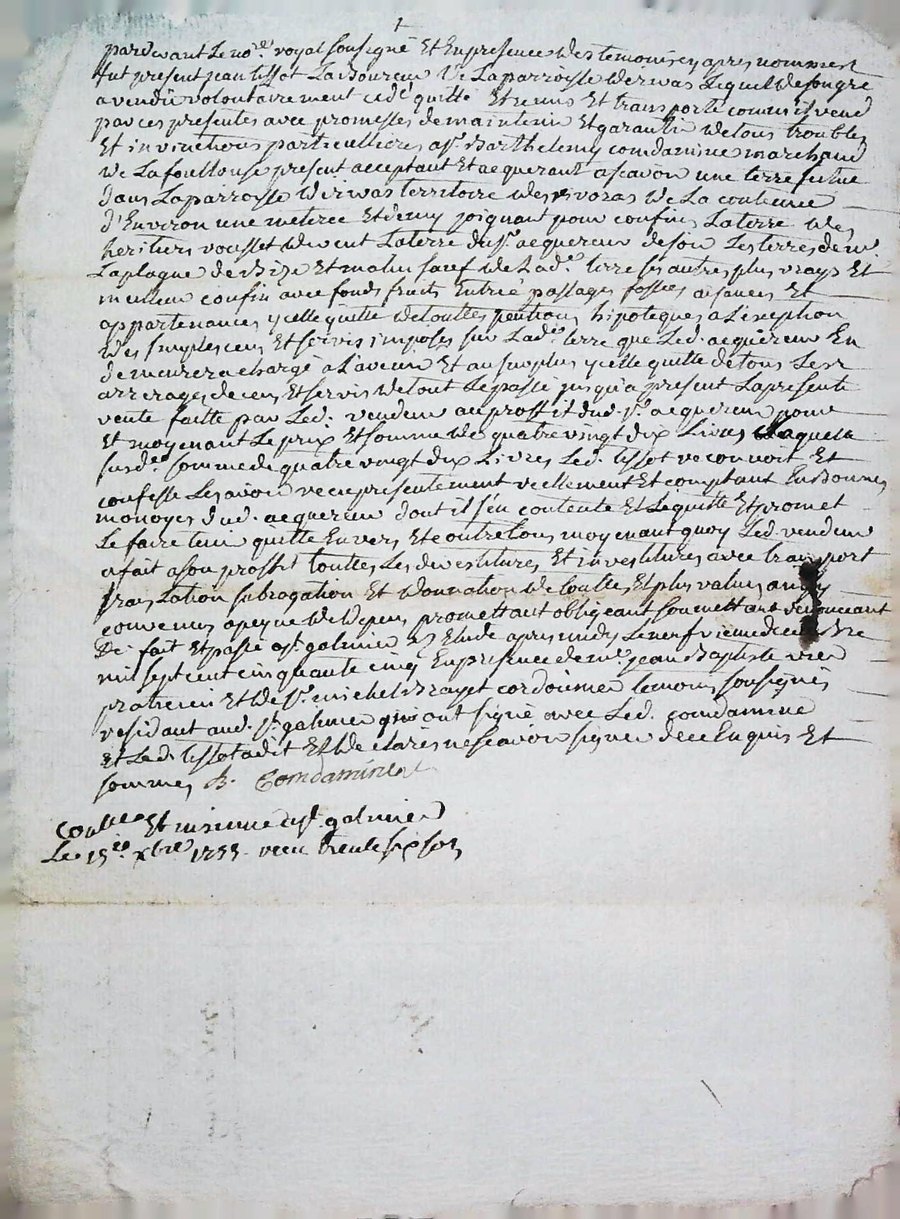 pardevant Le no.re royal soussigné Et En presence des temoins cy apres nommés
fut present jean tissot Laboureur de La parroisse Lequel de son gré
a vendû volontairement cedé quitté Et remis Et transporté comme il vend
par ces presentes avec promesses de maintenir Et garantir de tous troubles
Et inquietions particullieres a s.r Barthelemy Comdamine marchand
de La fouillouse present acceptant Et acquerant ascavoir une terre scitue
dans La parroisse territoire des vozas de La contenue
d'Environ une meteree Et demy joignant pour confins La terre des
heritiers vousset La terre du s.r acquereur de soir Les terres de m.r
Laplagne de Bize Et matin sauf de Lad.e terre ses autres plus vrays Et
meilleur confin avec fonds fruits Entrée passages fosses aisances Et
appartenances ycelle quitte de touttes pentions hipoteques a L'exeption
des simples cens Et servis imposés sur Lad.e terre que Led. acquereur En
demeurera chargé a L'avenir Et au surplus ycelle quitte de tous Les
arrerages de cens Et servis de tout Le passé jusqu'a present La presente
vente faitte par Led. vendeur au proffit dud. s.r acquereur pour
Et moyenant Le prix Et somme de quatre vingt dix Livres Laquelle
susd.e somme de quatre vingt dix Livres Led. tissot reconnoit Et
confesse Les avoir receu presentement reellement Et comptant En Bonnes
monoyes dud. acquereur dont il s'en contente Et Le quitte Et promet
Le faire tenir quitte Envers Et contre tous moyenant quoy Led. vendeur
a fait a son proffit touttes Les devestitures Et investitures avec transport
translation subrogation Et donnation de toutte Et plus values ainsy
convenus a peyne de depens promettant obligeant soumettant renonceant
De fait Et passé a s.t galmier Etude apres midy Le neufvieme decembre
mil sept cent cinquante cinq En presence de m.e jean Baptiste
praticien Et de s.r michel Brayet cordonnier temoins soussignés
residant aud. s.t galmier qui ont signé avec Led. Comdamine
Et Led. tissot a dit Et declaré ne scavoir signer de ce Enquis Et
sommé B. Comdamine
Controllé Et insinué a s.t galmier
Le 15.e xbre 1755. receu trente six sols